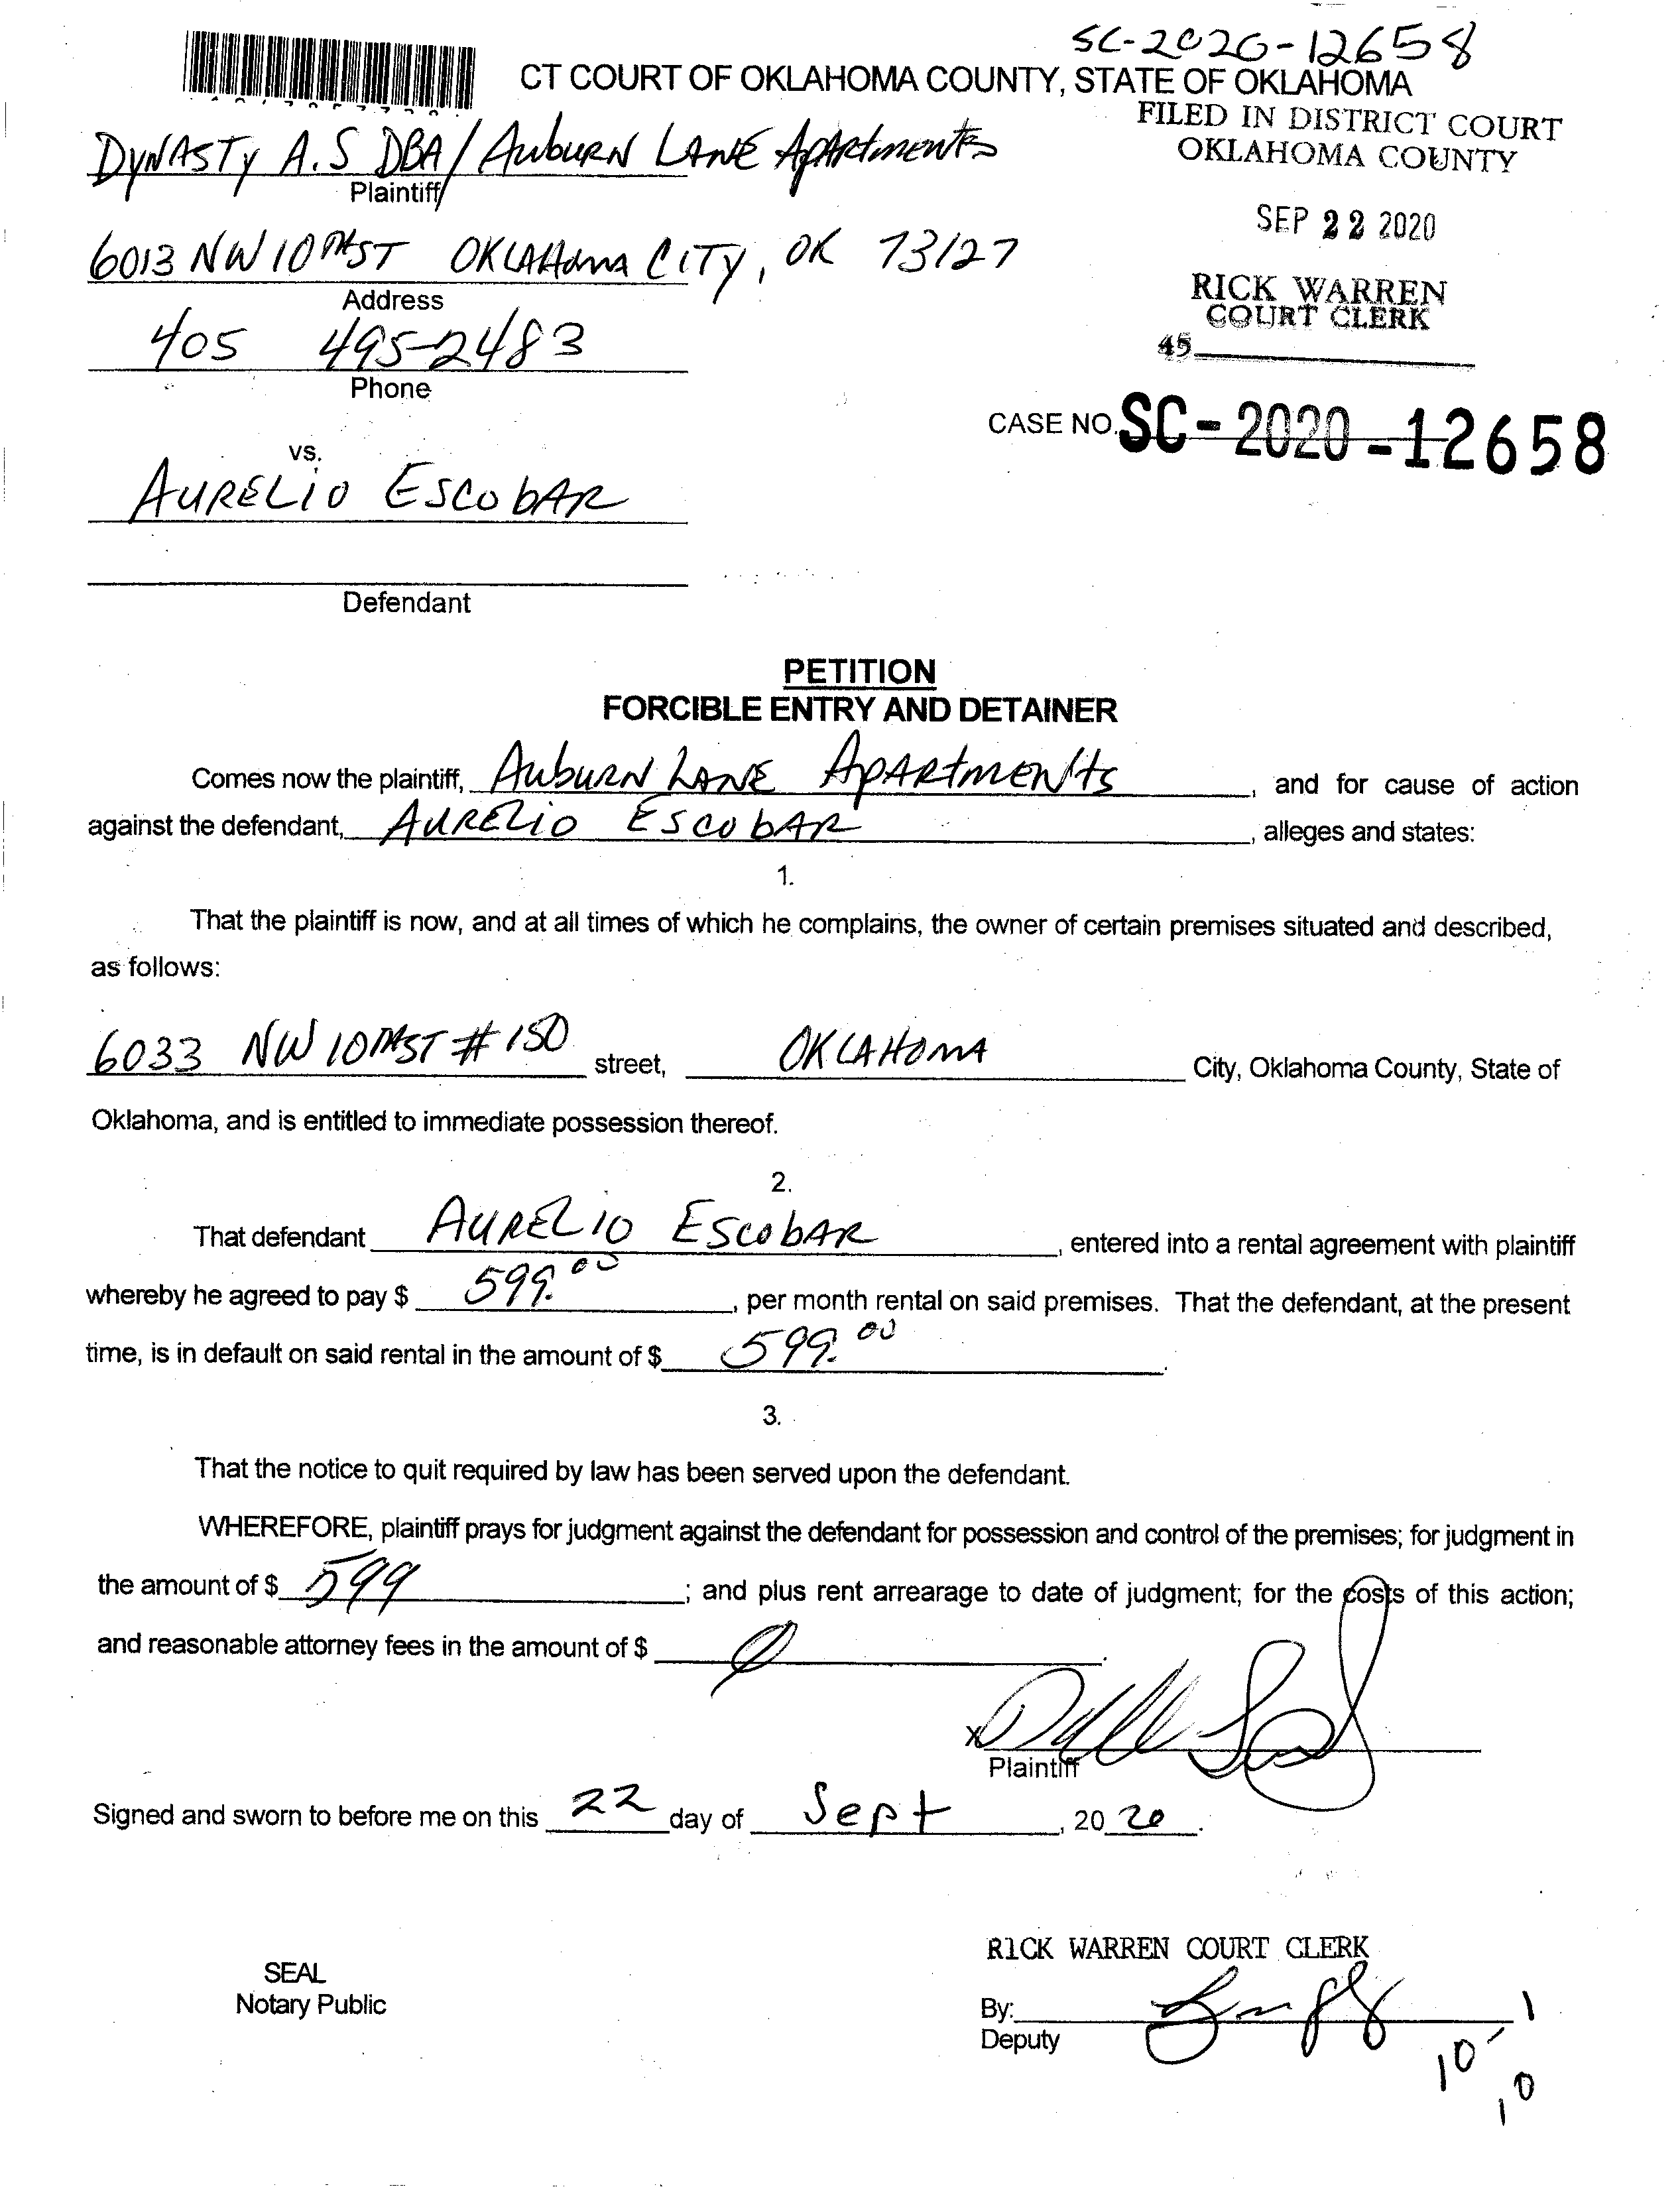 SC-2020-12658
CT COURT OF OKLAHOMA COUNTY, STATE OF OKLAHOMA
FILED IN DISTRICT COURT
OKLAHOMA COUNTY
DYNASTY A.S DBA/ AubuRN LANE ApARtmeNts
Plaintiff
SEP 22 2020
6013 NW 10th ST OKLAHOMA CITY, OK 73127
Address
RICK WARREN
COURT CLERK
405 495-2483
Phone
45
CASE NO. SC-2020-12658
vs.
AURELIO ESCObAR
Defendant
PETITION
FORCIBLE ENTRY AND DETAINER
Comes now the plaintiff, AubuRN LANE ApARtmeNts, and for cause of action
against the defendant, AURELIO ESCObAR, alleges and states:
1.
That the plaintiff is now, and at all times of which he complains, the owner of certain premises situated and described,
as follows:
6033 NW 10th ST # 150 street, OKLAHOMA City, Oklahoma County, State of
Oklahoma, and is entitled to immediate possession thereof.
2.
That defendant AURELIO ESCObAR, entered into a rental agreement with plaintiff
whereby he agreed to pay $ 599.00, per month rental on said premises. That the defendant, at the present
time, is in default on said rental in the amount of $ 599.00.
3.
That the notice to quit required by law has been served upon the defendant.
WHEREFORE, plaintiff prays for judgment against the defendant for possession and control of the premises; for judgment in
the amount of $ 599; and plus rent arrearage to date of judgment; for the costs of this action;
and reasonable attorney fees in the amount of $ 0.
X
Plaintiff
Signed and sworn to before me on this 22 day of Sept, 2020.
RICK WARREN COURT CLERK
SEAL
Notary Public
By:
Deputy
10-1
10